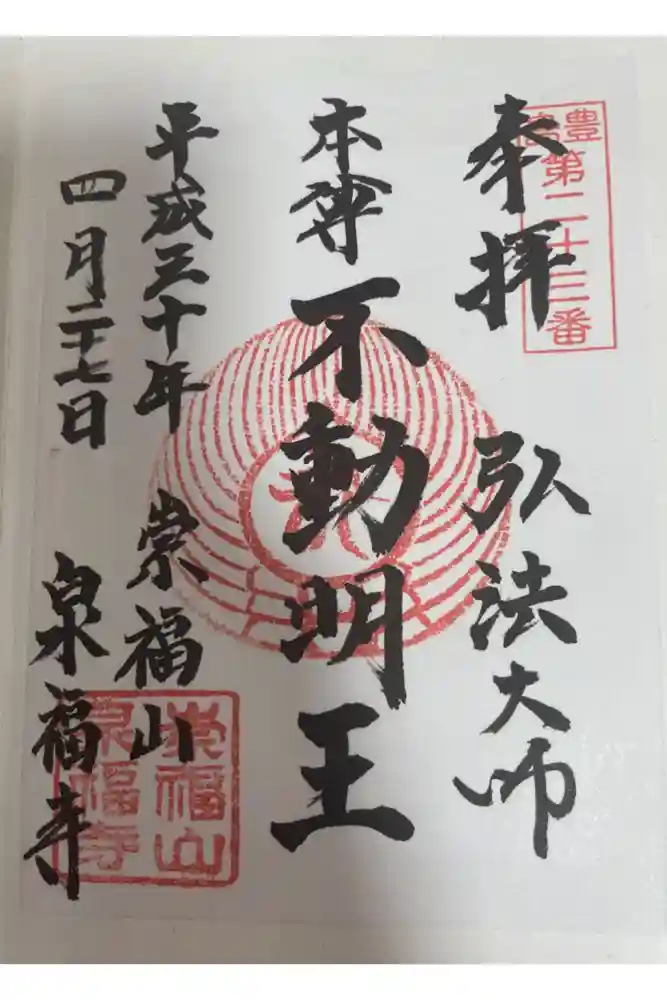 豊島第二十三番
奉拝 弘法大師
本尊 不動明王
平成三十年 崇福山
四月二十七日 泉福寺
崇福山
泉福寺